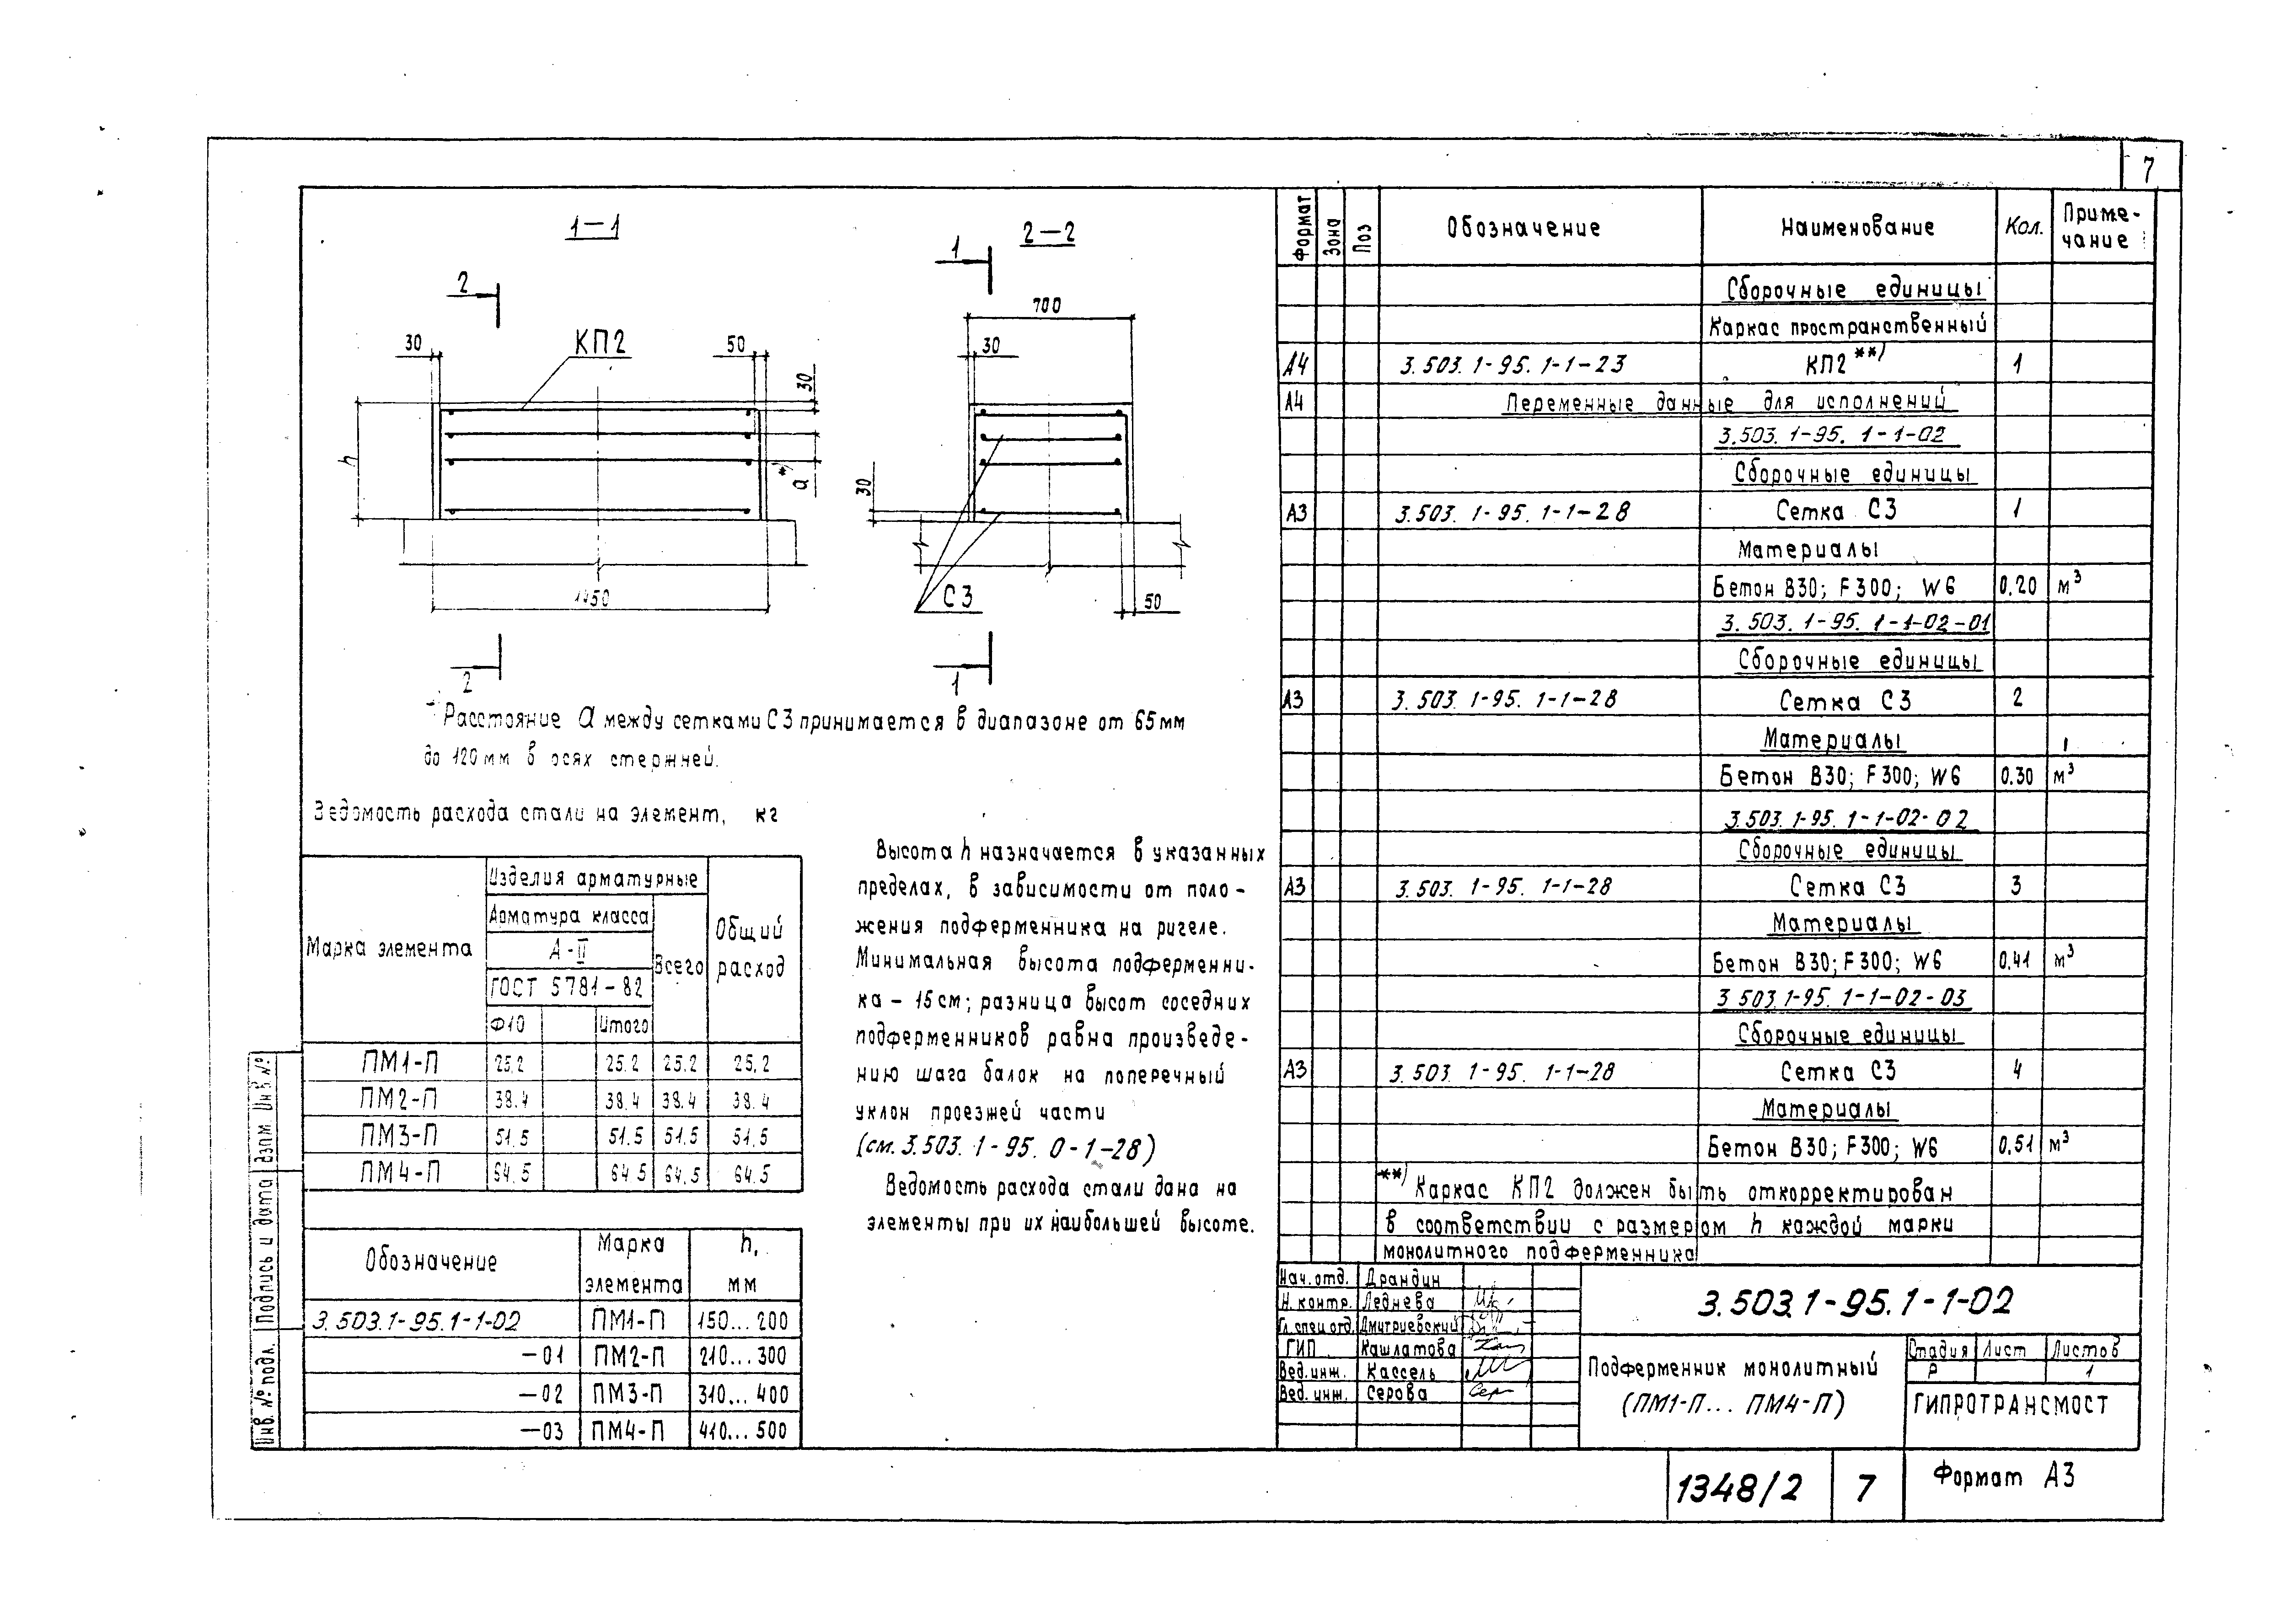 7
1—1
2—2
2
1
700
30
КП2
50
30
30
h
a *)
30
1450
С3
50
2
1
Расстояние a между сетками С3 принимается в диапазоне от 65 мм
до 120 мм в осях стержней.
Ведомость расхода стали на элемент, кг
Марка элемента
Изделия арматурные
Арматура класса
А-II
ГОСТ 5781-82
Ф10
Итого
Всего
Общий
расход
ПМ1-П 25,2 25.2 25.2 25,2
ПМ2-П 38.4 38.4 38.4 38.4
ПМ3-П 51.5 51.5 51,5 51,5
ПМ4-П 64.5 64.5 64,5 64.5
Обозначение
Марка
элемента
h,
мм
3.503.1-95.1-1-02 ПМ1-П 150...200
-01 ПМ2-П 210...300
-02 ПМ3-П 310...400
-03 ПМ4-П 410...500
Высота h назначается в указанных
пределах, в зависимости от поло-
жения подферменника на ригеле.
Минимальная высота подферменни-
ка - 15 см; разница высот соседних
подферменников равна произведе-
нию шага балок на поперечный
уклон проезжей части
(см. 3.503. 1-95. 0-1-28)
Ведомость расхода стали дана на
элементы при их наибольшей высоте.
Формат Зона Поз Обозначение Наименование Кол. Приме-
чание
Сборочные единицы
Каркас пространственный
А4 3.503. 1-95. 1-1-23 КП2 **) 1
А4 Переменные данные для исполнений
3.503. 1-95. 1-1-02
Сборочные единицы
А3 3.503. 1-95. 1-1-28 Сетка С3 1
Материалы
Бетон В30; F300; W6 0.20 м3
3.503. 1-95. 1-1-02-01
Сборочные единицы
А3 3.503. 1-95. 1-1-28 Сетка С3 2
Материалы
Бетон В30; F300; W6 0.30 м3
3.503. 1-95. 1-1-02-02
Сборочные единицы
А3 3.503. 1-95. 1-1-28 Сетка С3 3
Материалы
Бетон В30; F300; W6 0.41 м3
3.503.1-95. 1-1-02-03
Сборочные единицы
А3 3.503. 1-95. 1-1-28 Сетка С3 4
Материалы
Бетон В30; F300; W6 0.51 м3
**) Каркас КП2 должен быть откорректирован
в соответствии с размером h каждой марки
монолитного подферменника
Нач. отд. Драндин
Н. контр. Леднева
Гл. спец отд. Дмитриевский
ГИП Кашлатова
Вед. инж. Кассель
Вед. инж. Серова
3.503.1-95.1-1-02
Подферменник монолитный
(ПМ1-П... ПМ4-П)
Стадия Лист Листов
Р 1
ГИПРОТРАНСМОСТ
Инв. № подл. Подпись и дата Взам. Инв №
1348/2 7 Формат А3